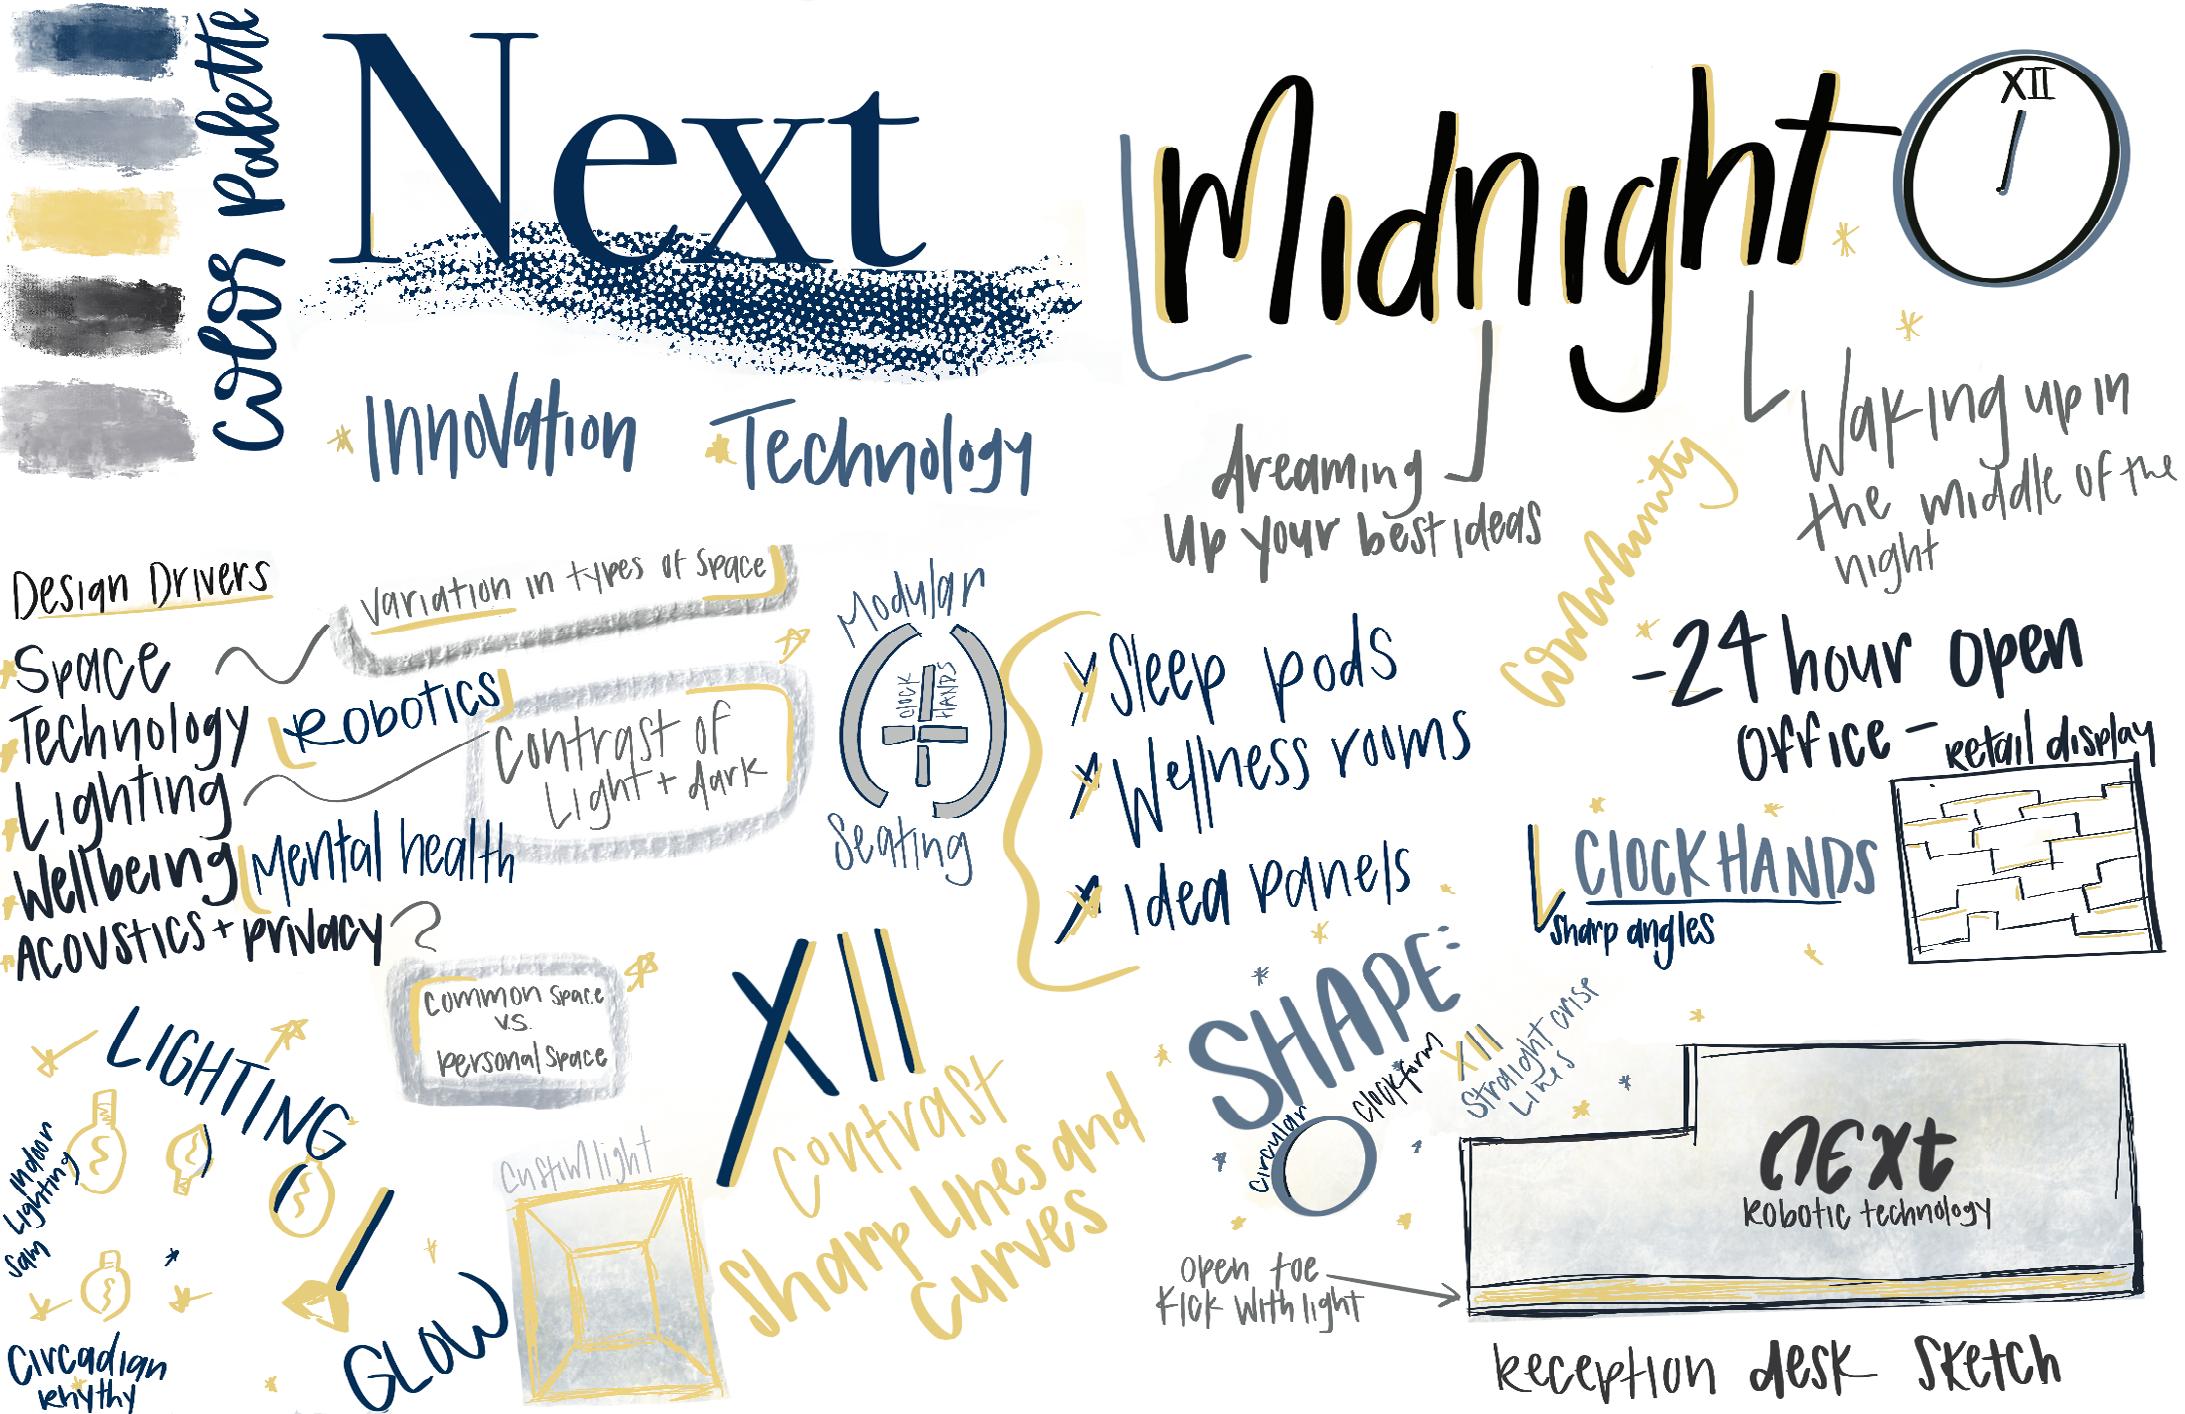 Color Palette
Next
Innovation
Technology
Midnight
XII
dreaming
up your best ideas
Waking up in
the middle of the
night
Community
Design Drivers
Space
Technology
Lighting
Wellbeing
Acoustics + privacy
Variation in types of space
Robotics
Contrast of
Light + dark
Mental health
Common space
V.S.
personal space
Modular
Clock
Hands
Seating
Sleep pods
Wellness rooms
Idea panels
-24 hour open
Office -
retail display
Clock Hands
Sharp angles
LIGHTING
Indoor
Lighting
Circadian
Rhythy
GLOW
Custom light
XII
Contrast
Sharp lines and
curves
SHAPE:
Circular
Clock form
XIII
Straight crisp
Lines
Next
Robotic technology
Open toe
Kick with light
Reception desk sketch